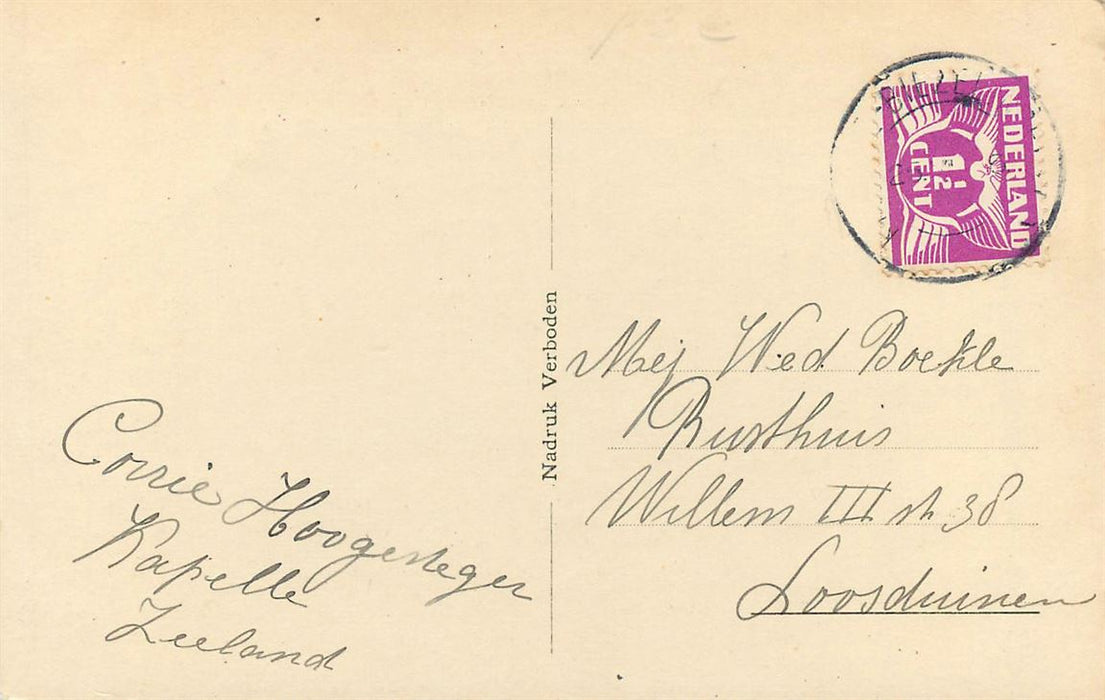 NEDERLAND
1½
CENT
Nadruk Verboden
Mej Wed. Boekle
Rusthuis
Willem III str 38
Loosduinen
Corrie Hoogesteger
Kapelle
Zeeland